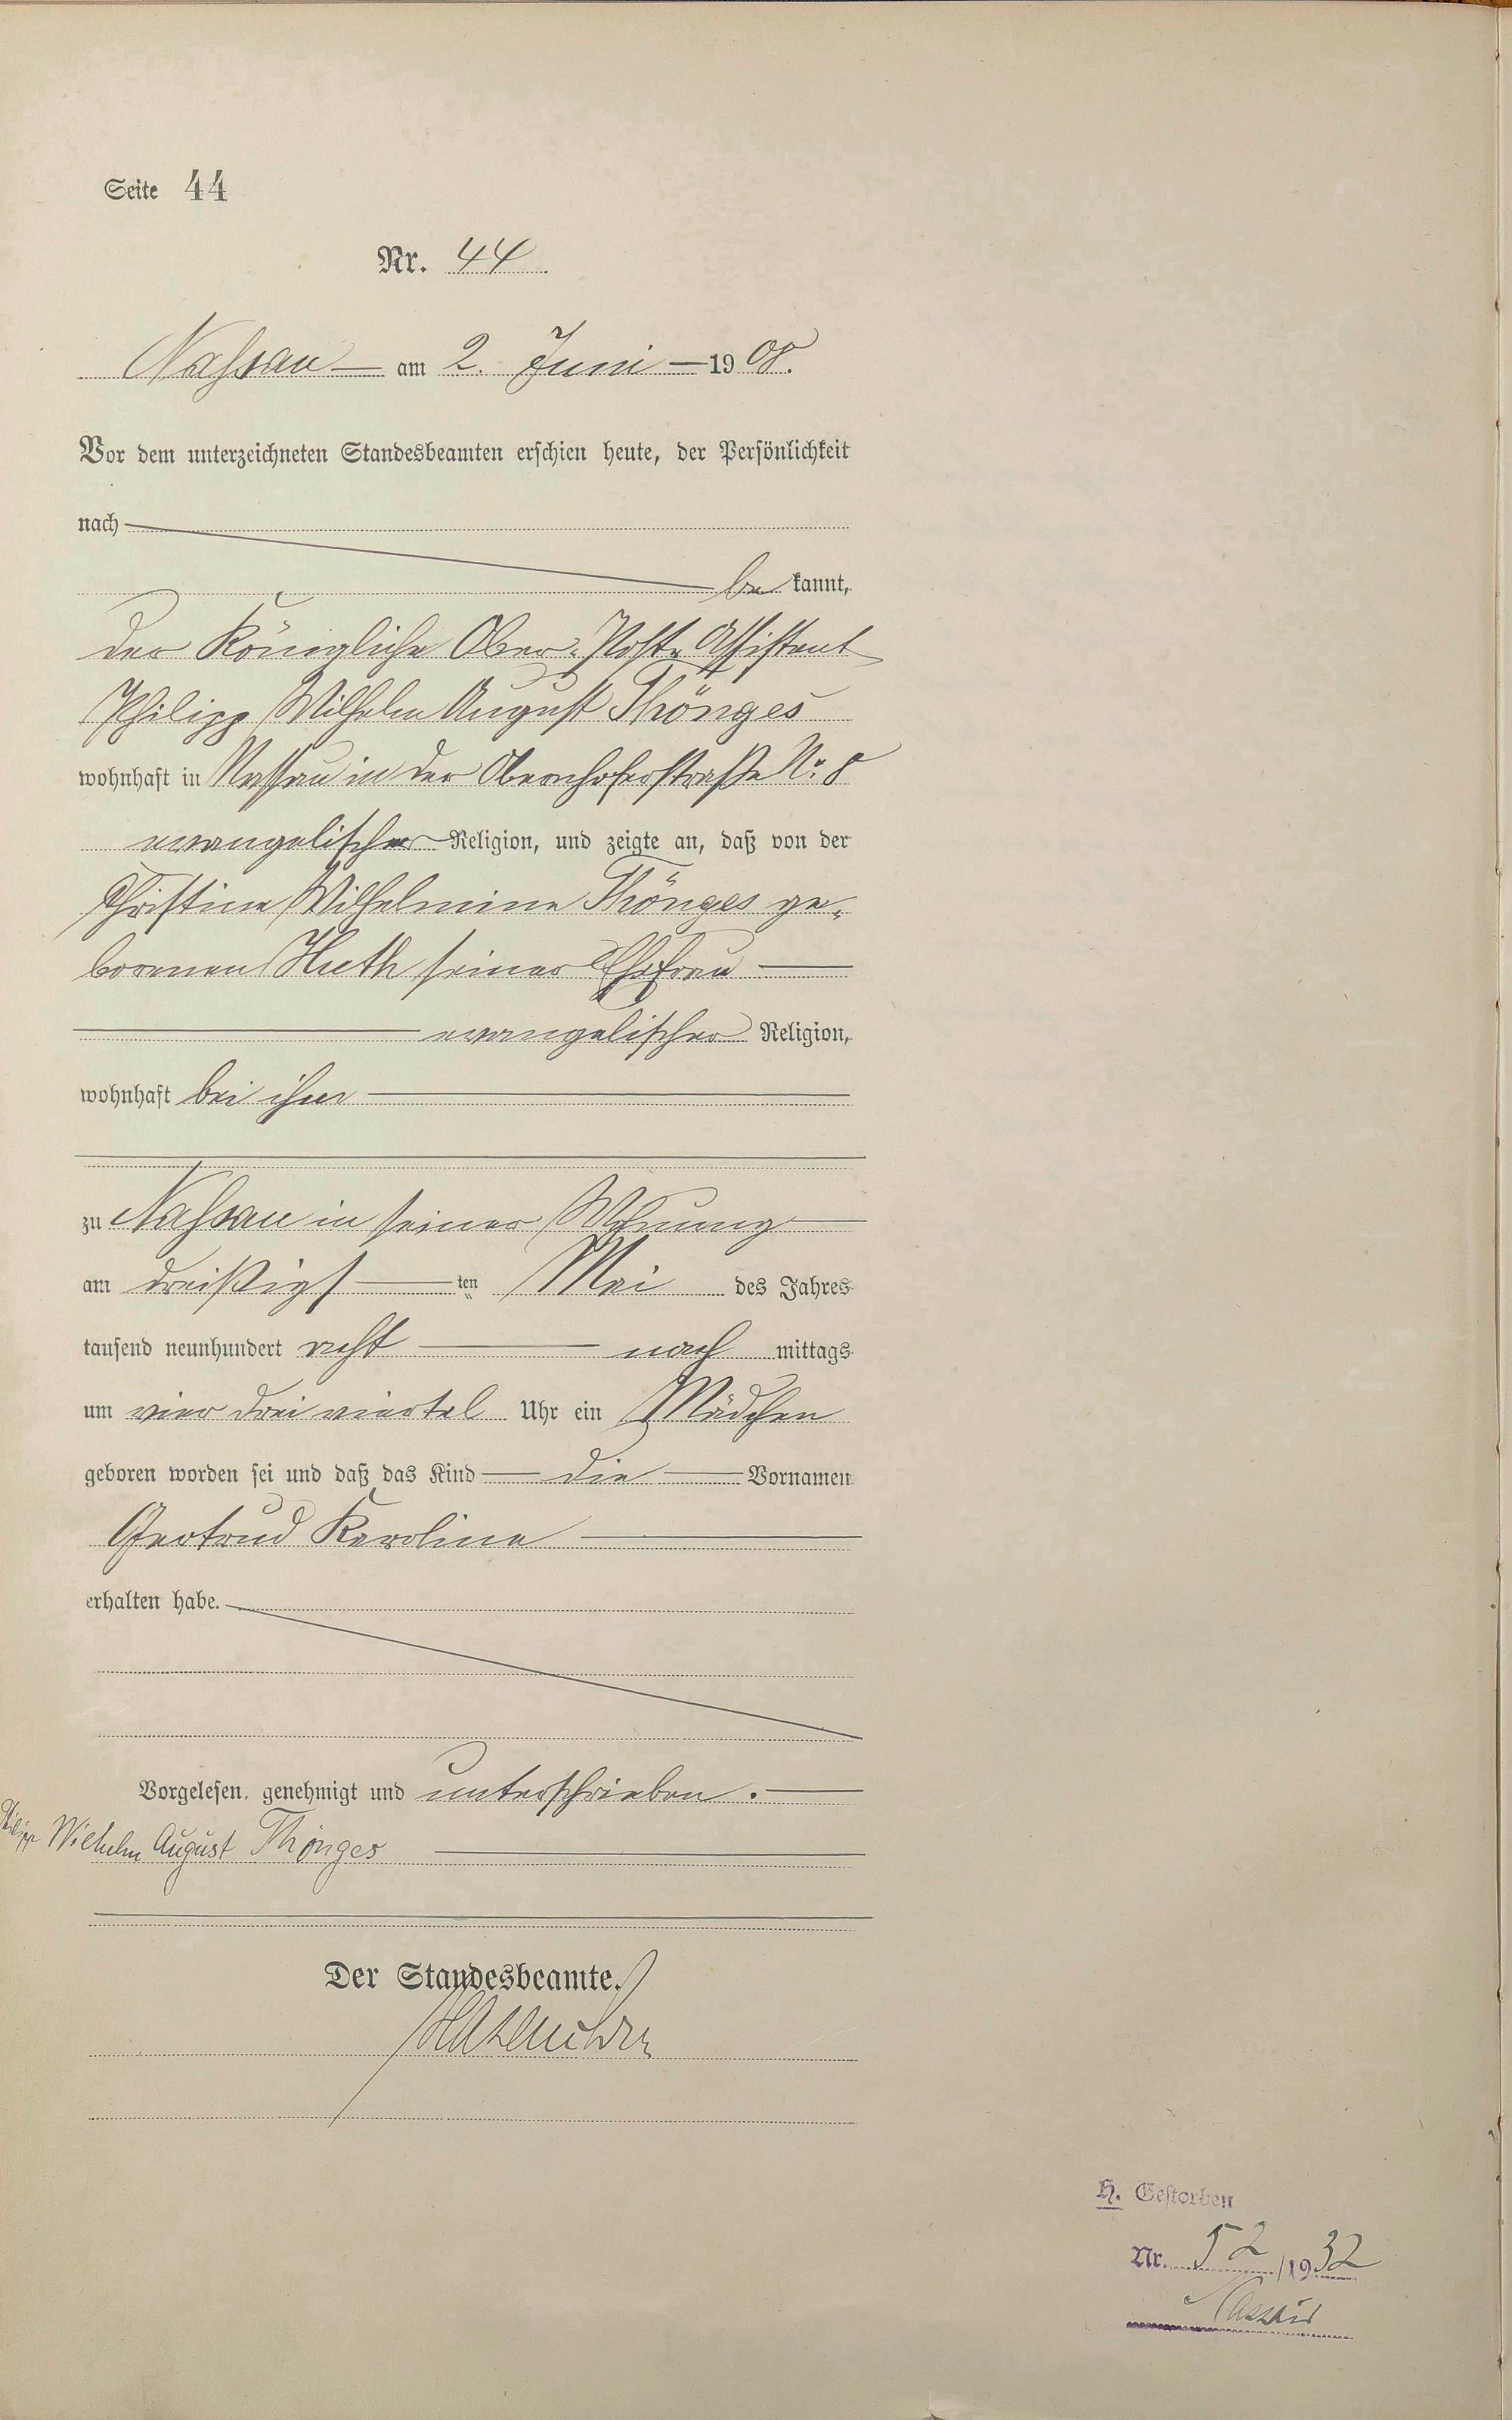 Seite 44
Nr. 44
Nassau am 2. Juni 1908.
Vor dem unterzeichneten Standesbeamten erschien heute, der Persönlichkeit
nach
be kannt,
der Königliche Ober-Post-Assistent
Philipp Wilhelm August Thönges
wohnhaft in Nassau in der Obernhoferstraße No 8
evangelischer Religion, und zeigte an, daß von der
Christine Wilhelmine Thönges ge-
borenen Huth seiner Ehefrau
evangelischer Religion,
wohnhaft bei ihm
zu Nassau in seiner Wohnung
am dreißigsten Mai des Jahres
tausend neunhundert acht nach mittags
um vier drei viertel Uhr ein Mädchen
geboren worden sei und daß das Kind die Vornamen
Gertrud Karoline
erhalten habe.
Vorgelesen, genehmigt und unterschrieben.
Philipp Wilhelm August Thönges
Der Standesbeamte.
H. Gestorben
Nr. 52/1932
Nassau